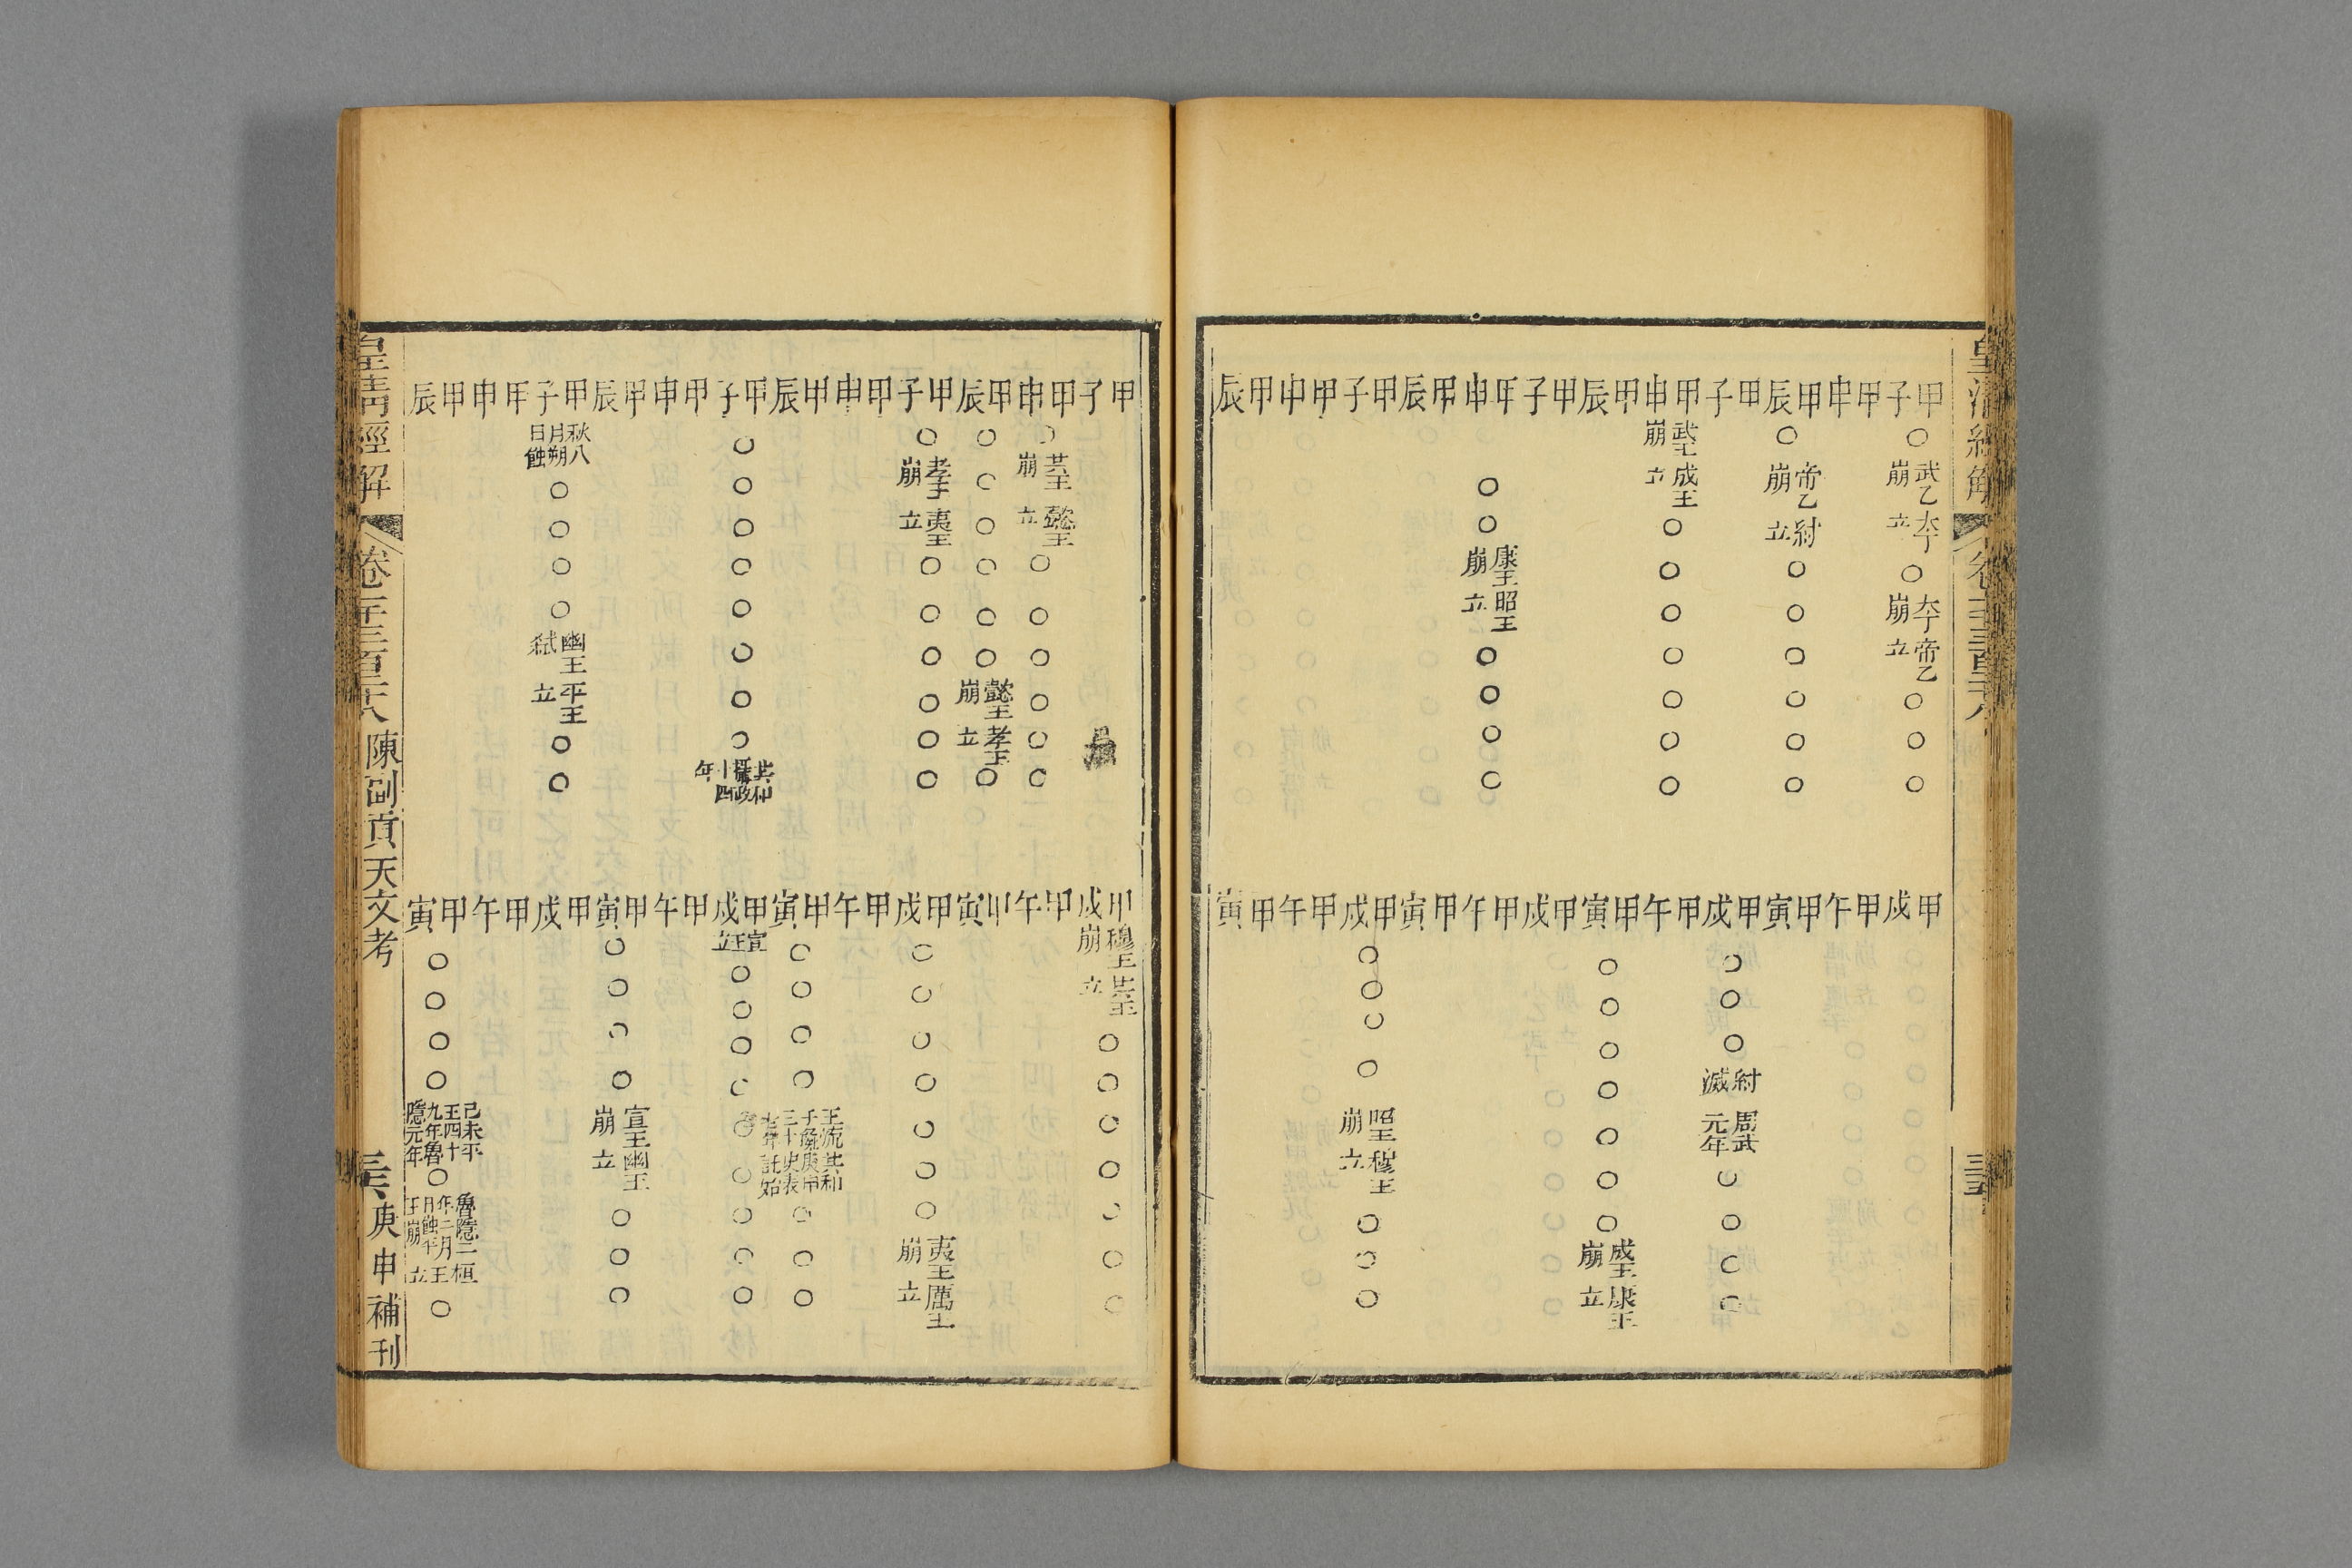 皇清經解 卷一千三百三十八
甲子 ○ 武乙崩 太丁立 ○ 太丁崩 帝乙立 ○○○ 甲戌
甲申 甲午
甲辰 ○ 帝乙崩 紂立 ○○○○○○ 甲寅
甲子 甲戌 ○○○ 紂滅 周武元年 ○○○○
甲申 武王崩 成王立 ○○○○○○○ 甲午
甲辰 甲寅 ○○○○○○○ 成王崩 康王立
甲子 甲戌
甲申 ○○ 康王崩 昭王立 ○○○○ 甲午
甲辰 甲寅
甲子 甲戌 ○○○○ 昭王崩 穆王立 ○○○
甲申 甲午
甲辰 甲寅
甲子 甲戌 穆王崩 共王立 ○○○○○○○
甲申 ○ 共王崩 懿王立 ○○○○○○ 甲午
甲辰 ○○○○○○ 懿王崩 孝王立 ○ 甲寅
甲子 ○ 孝王崩 夷王立 ○○○○○○ 甲戌 ○○○○○○○ 夷王崩 厲王立
甲申 甲午
甲辰 甲寅 ○○○○ 王流于彘 共和庚申 史表託始 ○○○
甲子 ○○○○○○○○ 共和攝政十四年 甲戌 宣王立 ○○○○○○○○○
甲申 甲午
甲辰 甲寅 ○○○○ 宣王崩 幽王立 ○○○
甲子 秋八月朔日蝕 ○○○○ 幽王弒 平王立 ○○ 甲戌
甲申 甲午
甲辰 甲寅 ○○○○ 己未平王四十九年魯隱元年 ○ 魯隱二年二月日蝕平王崩 桓王立 ○
皇清經解 卷一千三百三十八 陳副貢天文考 庚申補刊